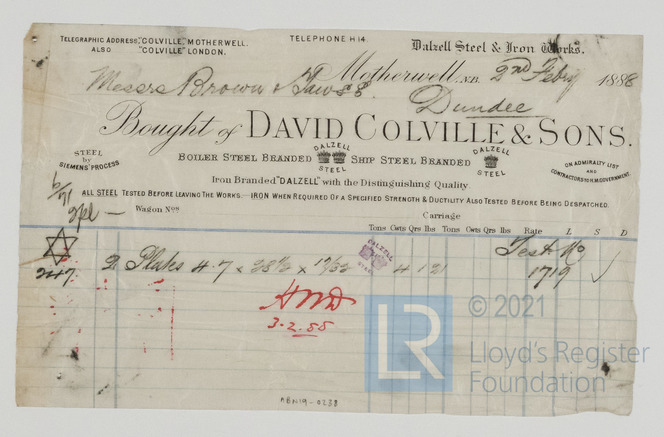 TELEGRAPHIC ADDRESS, "COLVILLE," MOTHERWELL.
ALSO "COLVILLE" LONDON.
TELEPHONE H 14.
Dalzell Steel & Iron Works.
Motherwell, N.B. 2nd Feby 1888
Messrs Brown &
Dundee
Bought of DAVID COLVILLE & SONS.
STEEL by SIEMENS' PROCESS
BOILER STEEL BRANDED DALZELL STEEL SHIP STEEL BRANDED DALZELL STEEL
ON ADMIRALTY LIST AND CONTRACTORS TO H.M. GOVERNMENT.
Iron Branded "DALZELL" with the Distinguishing Quality
ALL STEEL TESTED BEFORE LEAVING THE WORKS.—IRON WHEN REQUIRED OF A SPECIFIED STRENGTH & DUCTILITY ALSO TESTED BEFORE BEING DESPATCHED.
Wagon Nos
Carriage
Tons Cwts Qrs lbs Tons Cwts Qrs lbs Rate L S D
Test No
247 2 Plates 4.7 x DALZELL STEEL 4 1 21 1719
3.2.88
ABN19-0238
LR
© 2021
Lloyd's Register
Foundation